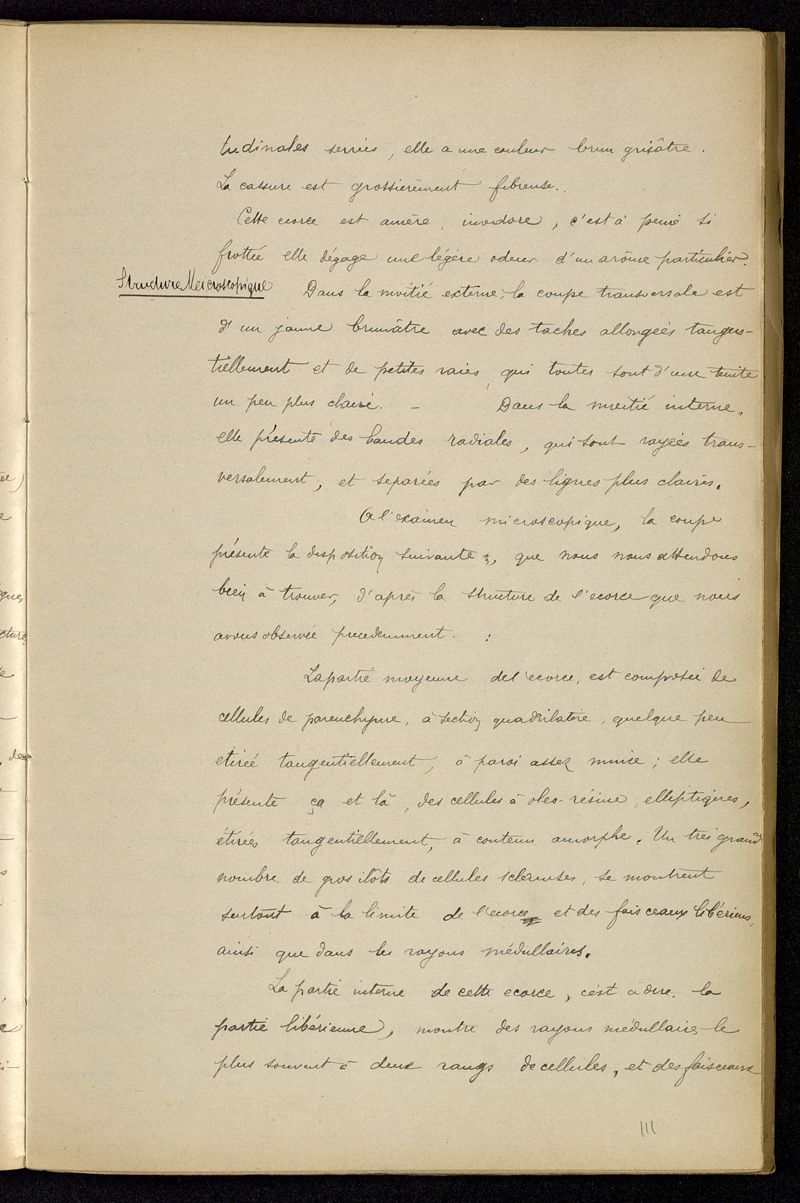 tudinales serrées, elle a une couleur brun grisâtre.
La cassure est grossièrement fibreuse.
Cette ecorce est amère, inodore, c'est à peine si
frottée elle dégage une légère odeur d'un arôme particulier.
Structure Meicroscopique Dans la moitié externe, la coupe transversale est
d'un jaune brunâtre avec des taches allongées tangen-
tiellement et de petites raies, qui toutes sont d'une teinte
un peu plus claire. – Dans la moitié interne,
elle présente des bandes radiales, qui sont rayées trans-
versalement, et separées par des lignes plus claires.
A l'exàmen microscopique, la coupe
présente la disposition suivante, que nous nous attendons
bien à trouver, d'après la structure de l'ecorce que nous
avons observée precedemment. :
La partie moyenne de l'ecorce, est composée de
cellules de parenchyme, à section quadrilatère, quelque peu
etirée tangentiellement, à paroi assez mince ; elle
présente çà et là, des cellules à oleo-résine, elliptiques,
étirées tangentiellement, à contenu amorphe. Un très grand
nombre de gros ilôts de cellules sclereuses, se montrent
surtout à la limite de l'ecorce et des faisceaux libériens,
ainsi que dans les rayons médullaires.
La partie interne de cette ecorce, c'est a dire la
partie libérienne, montre des rayons médullaires le
plus souvent à deux rangs de cellules, et des faisceaux
111